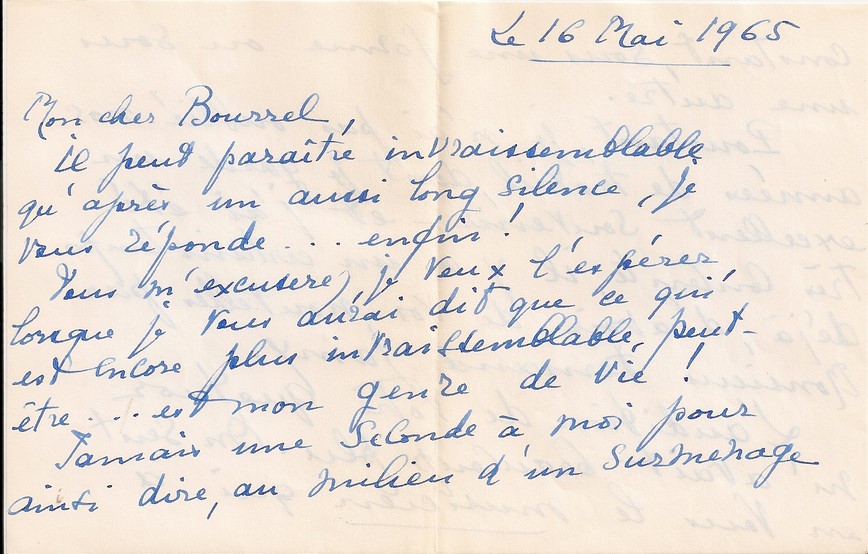 Le 16 Mai 1965
Mon cher Bourrel,
Il peut paraître invraissemblable
qu'après un aussi long silence, je
vous réponde... enfin!
Vous m'excuserez, je veux l'espérer
lorsque je vous aurai dit que ce qui
est encore plus invraissemblable, peut-
être... est mon genre de vie!
Jamais une seconde à moi pour
ainsi dire, au milieu d'un surmenage